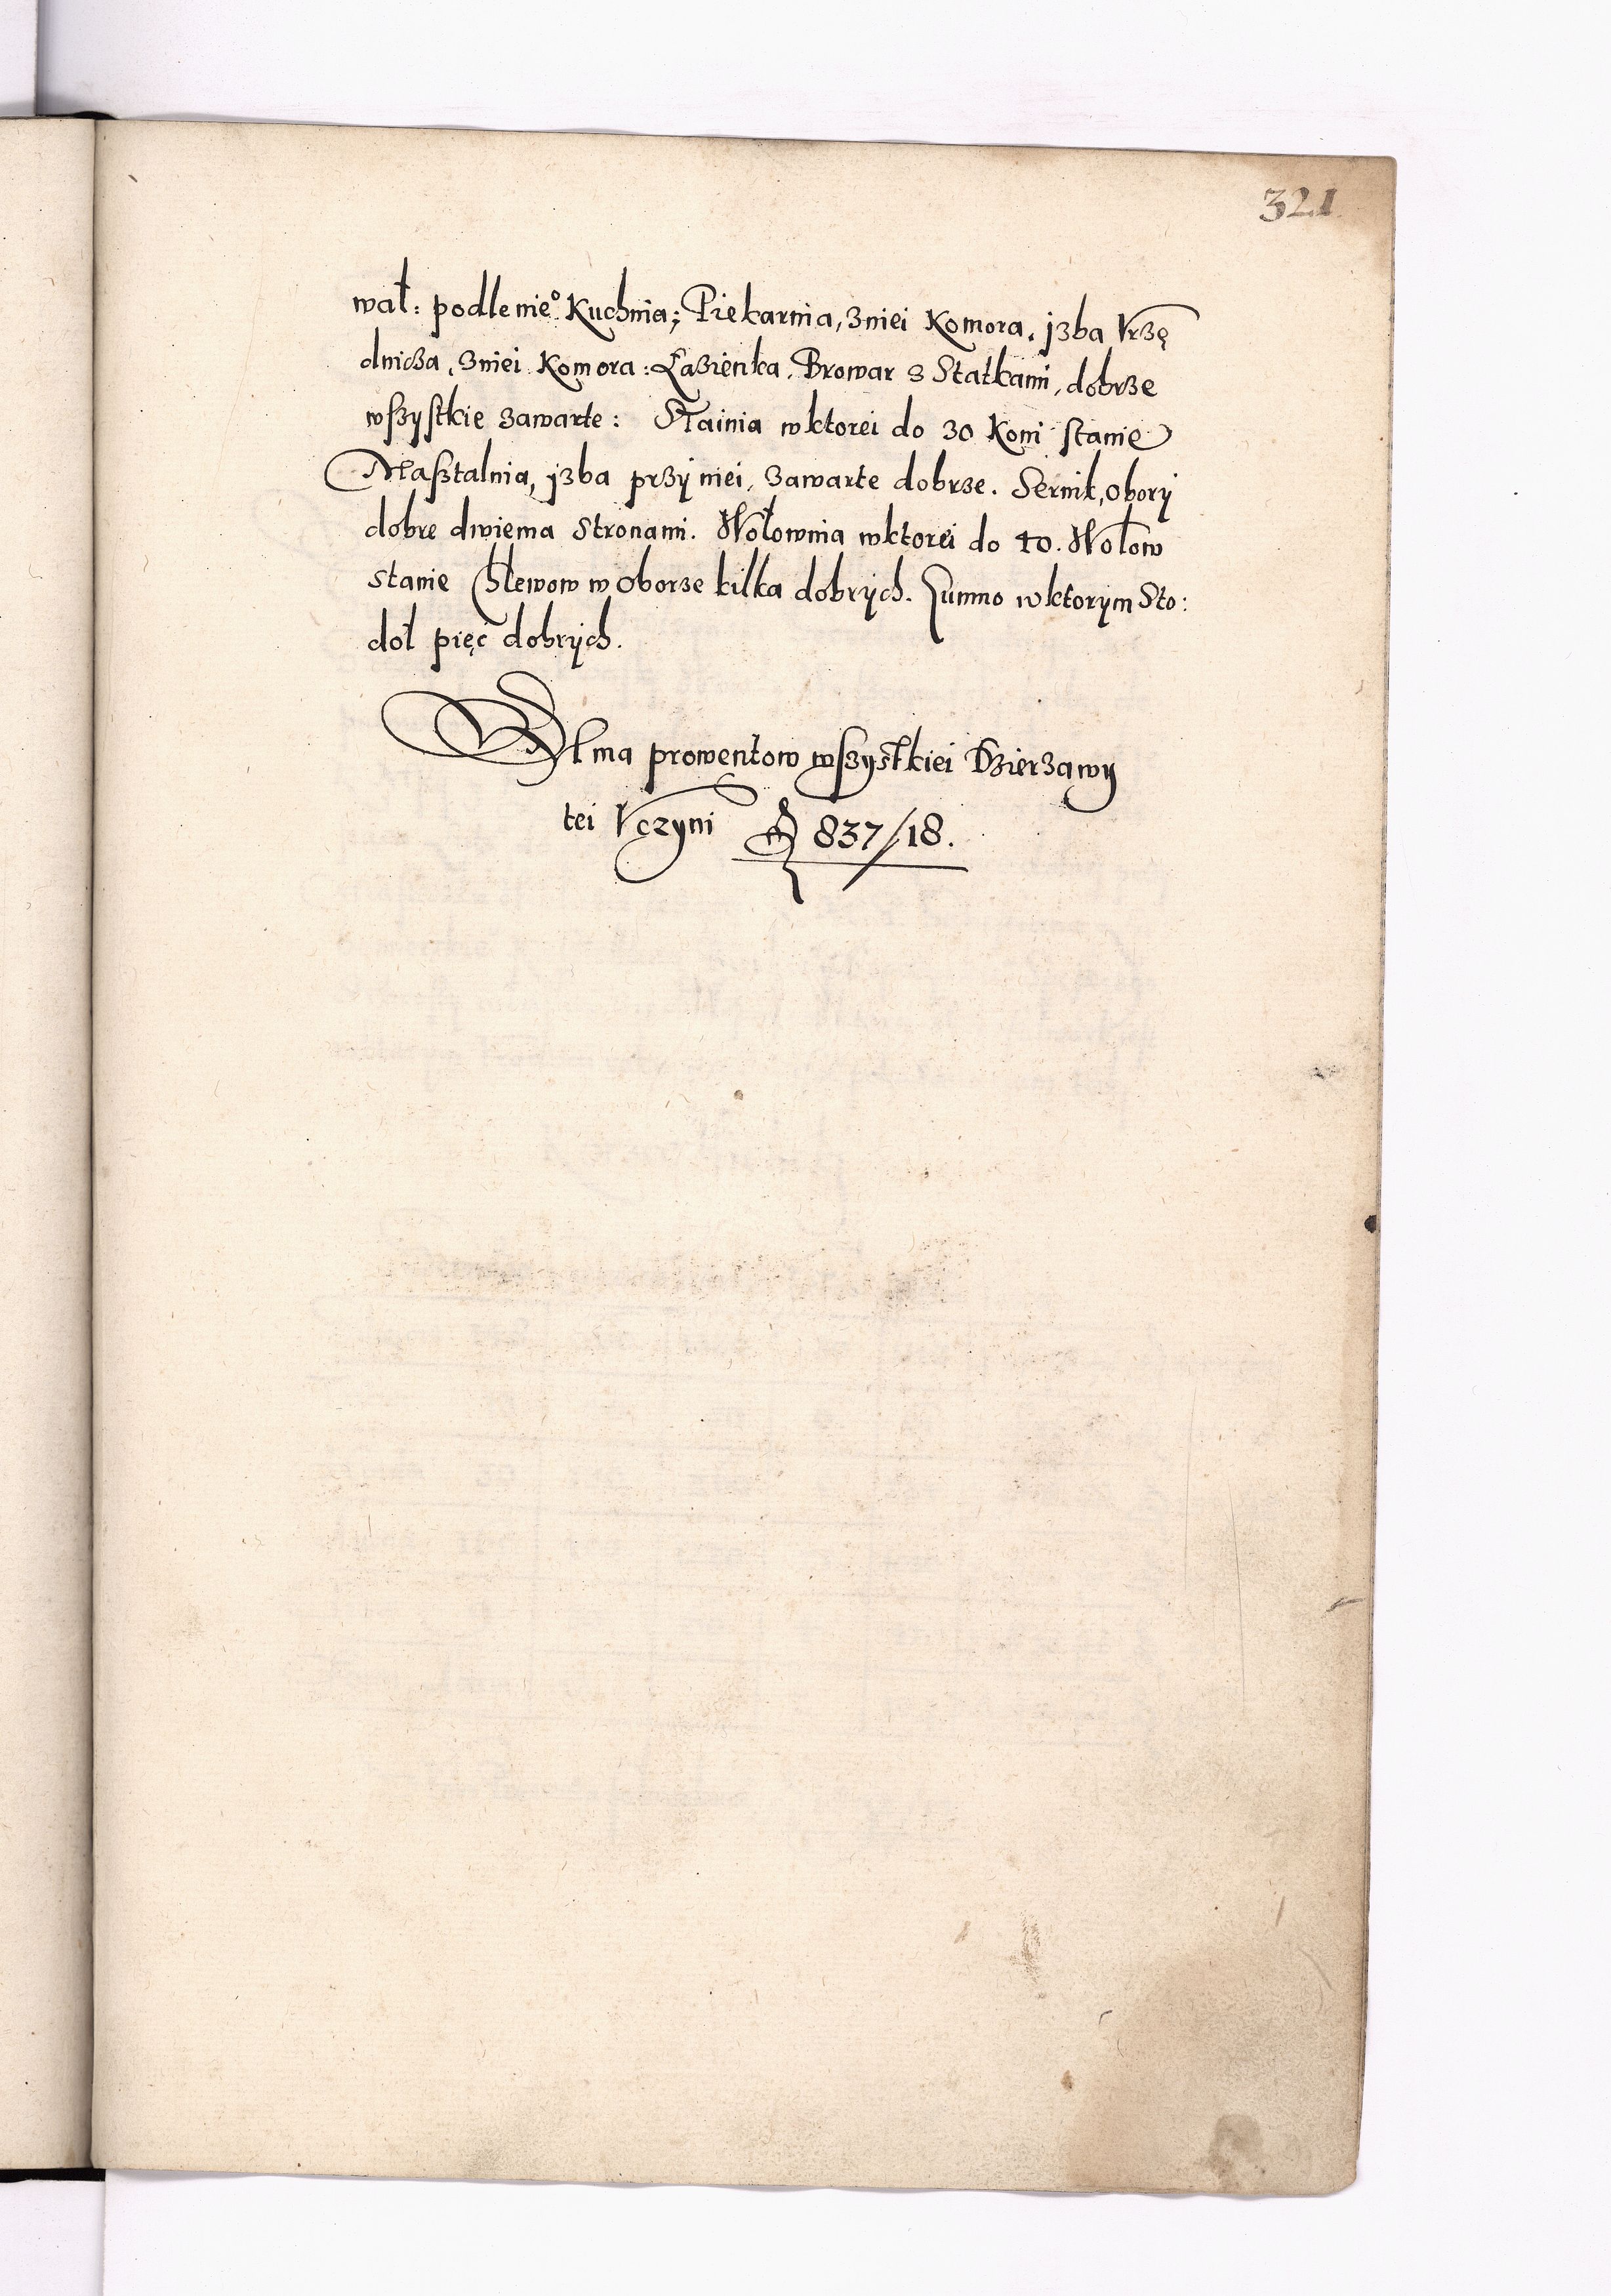 321
wał: podle nieº Kuchnia; Piekarnia, z niei Komora, jzba Vrzę
dnicza, z niei Komora: Łazienka, Browar z Statkami, dobrze
wszystkie zawarte: Stainia w ktorei do 30 Koni stanie
Masztalnia, jzba przÿ niei, zawarte dobrze. Sernik, oborÿ
dobre dwiema stronami. Wołownia w ktorei do 40. Wołow
stanie Chlewow w Oborze kilka dobrÿch. Gumno w ktorym Sto:
doł pięć dobrÿch.
SVma prowentow wszystkiei Dzierzawy
tei Vczyni f 837/18.